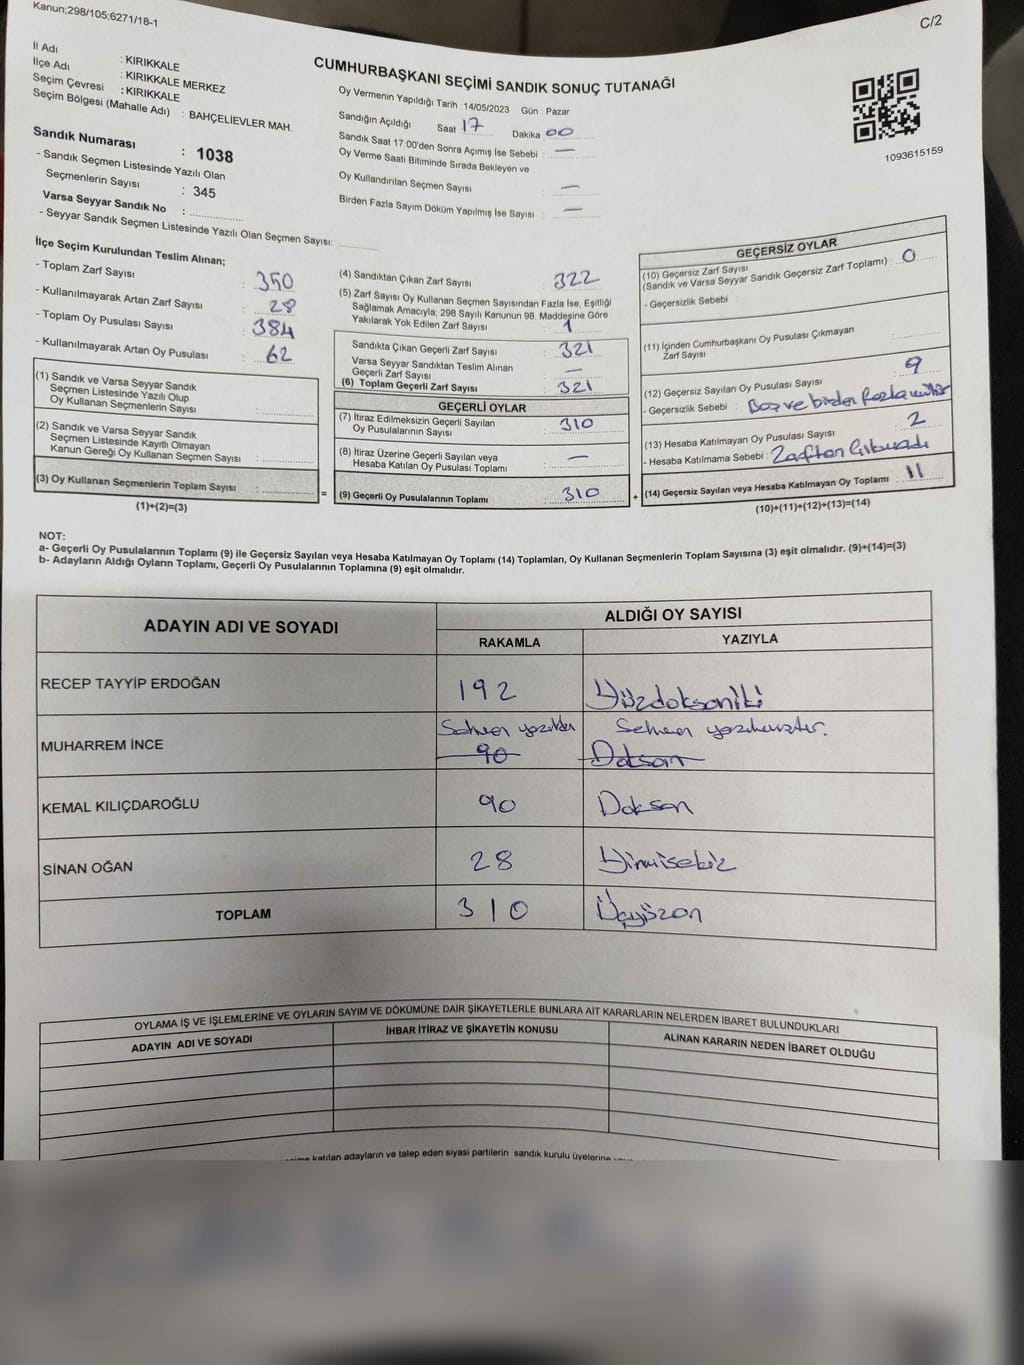 Kanun;298/105;6271/18-1
C/2
İl Adı : KIRIKKALE
İlçe Adı : KIRIKKALE MERKEZ
Seçim Çevresi : KIRIKKALE
Seçim Bölgesi (Mahalle Adı) : BAHÇELİEVLER MAH.
Sandık Numarası : 1038
- Sandık Seçmen Listesinde Yazılı Olan
Seçmenlerin Sayısı : 345
Varsa Seyyar Sandık No : ..............
- Seyyar Sandık Seçmen Listesinde Yazılı Olan Seçmen Sayısı: ..........
CUMHURBAŞKANI SEÇİMİ SANDIK SONUÇ TUTANAĞI
Oy Vermenin Yapıldığı Tarih :14/05/2023 Gün : Pazar
Sandığın Açıldığı Saat 17 Dakika 00
Sandık Saat 17:00'den Sonra Açımış İse Sebebi : —
Oy Verme Saati Bitiminde Sırada Bekleyen ve
Oy Kullandırılan Seçmen Sayısı : —
Birden Fazla Sayım Döküm Yapılmış İse Sayısı : —
1093615159
İlçe Seçim Kurulundan Teslim Alınan;
- Toplam Zarf Sayısı : 350
- Kullanılmayarak Artan Zarf Sayısı : 28
- Toplam Oy Pusulası Sayısı : 384
- Kullanılmayarak Artan Oy Pusulası : 62
(1) Sandık ve Varsa Seyyar Sandık
Seçmen Listesinde Yazılı Olup
Oy Kullanan Seçmenlerin Sayısı :
(2) Sandık ve Varsa Seyyar Sandık
Seçmen Listesinde Kayıtlı Olmayan
Kanun Gereği Oy Kullanan Seçmen Sayısı :
(3) Oy Kullanan Seçmenlerin Toplam Sayısı :
(1)+(2)=(3)
=
(4) Sandıktan Çıkan Zarf Sayısı : 322
(5) Zarf Sayısı Oy Kullanan Seçmen Sayısından Fazla İse, Eşitliği
Sağlamak Amacıyla; 298 Sayılı Kanunun 98. Maddesine Göre
Yakılarak Yok Edilen Zarf Sayısı : 1
Sandıkta Çıkan Geçerli Zarf Sayısı : 321
Varsa Seyyar Sandıktan Teslim Alınan
Geçerli Zarf Sayısı : —
(6) Toplam Geçerli Zarf Sayısı : 321
GEÇERLİ OYLAR
(7) İtiraz Edilmeksizin Geçerli Sayılan
Oy Pusulalarının Sayısı : 310
(8) İtiraz Üzerine Geçerli Sayılan veya
Hesaba Katılan Oy Pusulası Toplamı : —
(9) Geçerli Oy Pusulalarının Toplamı : 310
+
GEÇERSİZ OYLAR
(10) Geçersiz Zarf Sayısı
(Sandık ve Varsa Seyyar Sandık Geçersiz Zarf Toplamı) : 0
- Geçersizlik Sebebi
(11) İçinden Cumhurbaşkanı Oy Pusulası Çıkmayan
Zarf Sayısı :
(12) Geçersiz Sayılan Oy Pusulası Sayısı : 9
- Geçersizlik Sebebi : Boş ve birden fazla mühür
(13) Hesaba Katılmayan Oy Pusulası Sayısı : 2
- Hesaba Katılmama Sebebi : Zarftan Çıkmadı
(14) Geçersiz Sayılan veya Hesaba Katılmayan Oy Toplamı : 11
(10)+(11)+(12)+(13)=(14)
NOT:
a- Geçerli Oy Pusulalarının Toplamı (9) ile Geçersiz Sayılan veya Hesaba Katılmayan Oy Toplamı (14) Toplamları, Oy Kullanan Seçmenlerin Toplam Sayısına (3) eşit olmalıdır. (9)+(14)=(3)
b- Adayların Aldığı Oyların Toplamı, Geçerli Oy Pusulalarının Toplamına (9) eşit olmalıdır.
ADAYIN ADI VE SOYADI
ALDIĞI OY SAYISI
RAKAMLA YAZIYLA
RECEP TAYYİP ERDOĞAN 192 Yüzdoksaniki
MUHARREM İNCE Sehven yazıldı 90 Sehven yazılmıştır. Doksan
KEMAL KILIÇDAROĞLU 90 Doksan
SİNAN OĞAN 28 Yirmisekiz
TOPLAM 310 Üçyüzon
OYLAMA İŞ VE İŞLEMLERİNE VE OYLARIN SAYIM VE DÖKÜMÜNE DAİR ŞİKAYETLERLE BUNLARA AİT KARARLARIN NELERDEN İBARET BULUNDUKLARI
ADAYIN ADI VE SOYADI İHBAR İTİRAZ VE ŞİKAYETİN KONUSU ALINAN KARARIN NEDEN İBARET OLDUĞU
katılan adayların ve talep eden siyasi partilerin sandık kurulu üyelerine